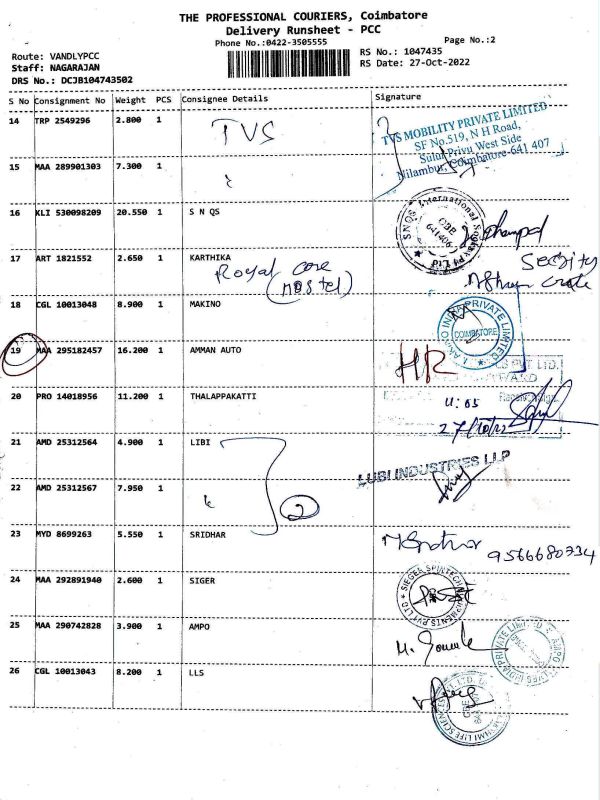 THE PROFESSIONAL COURIERS, Coimbatore
Delivery Runsheet - PCC
Phone No.:0422-3505555 Page No.:2
Route: VANDLYPCC RS No.: 1047435
Staff: NAGARAJAN RS Date: 27-Oct-2022
DRS No.: DCJB104743502
S No Consignment No Weight PCS Consignee Details Signature
14 TRP 2549296 2.800 1 TVS
TVS MOBILITY PRIVATE LIMITED
SF No.519, N H Road,
Sulur Privu West Side
Nilambur, Coimbatore-641 407
15 MAA 289901303 7.300 1
16 KLI 530098209 20.550 1 S N QS
SNQS International
CBE
641406
17 ART 1821552 2.650 1 KARTHIKA
Royal care
(Hostel)
18 CGL 10013048 8.900 1 MAKINO
PRIVATE LIMITED
COIMBATORE
19 MAA 295182457 16.200 1 AMMAN AUTO
HR
PVT LTD.
20 PRO 14018956 11.200 1 THALAPPAKATTI
27/10/22
21 AMD 25312564 4.900 1 LIBI
LUBI INDUSTRIES LLP
22 AMD 25312567 7.950 1
2
23 MYD 8699263 5.550 1 SRIDHAR
9566680734
24 MAA 292891940 2.600 1 SIGER
25 MAA 290742828 3.900 1 AMPO
26 CGL 10013043 8.200 1 LLS